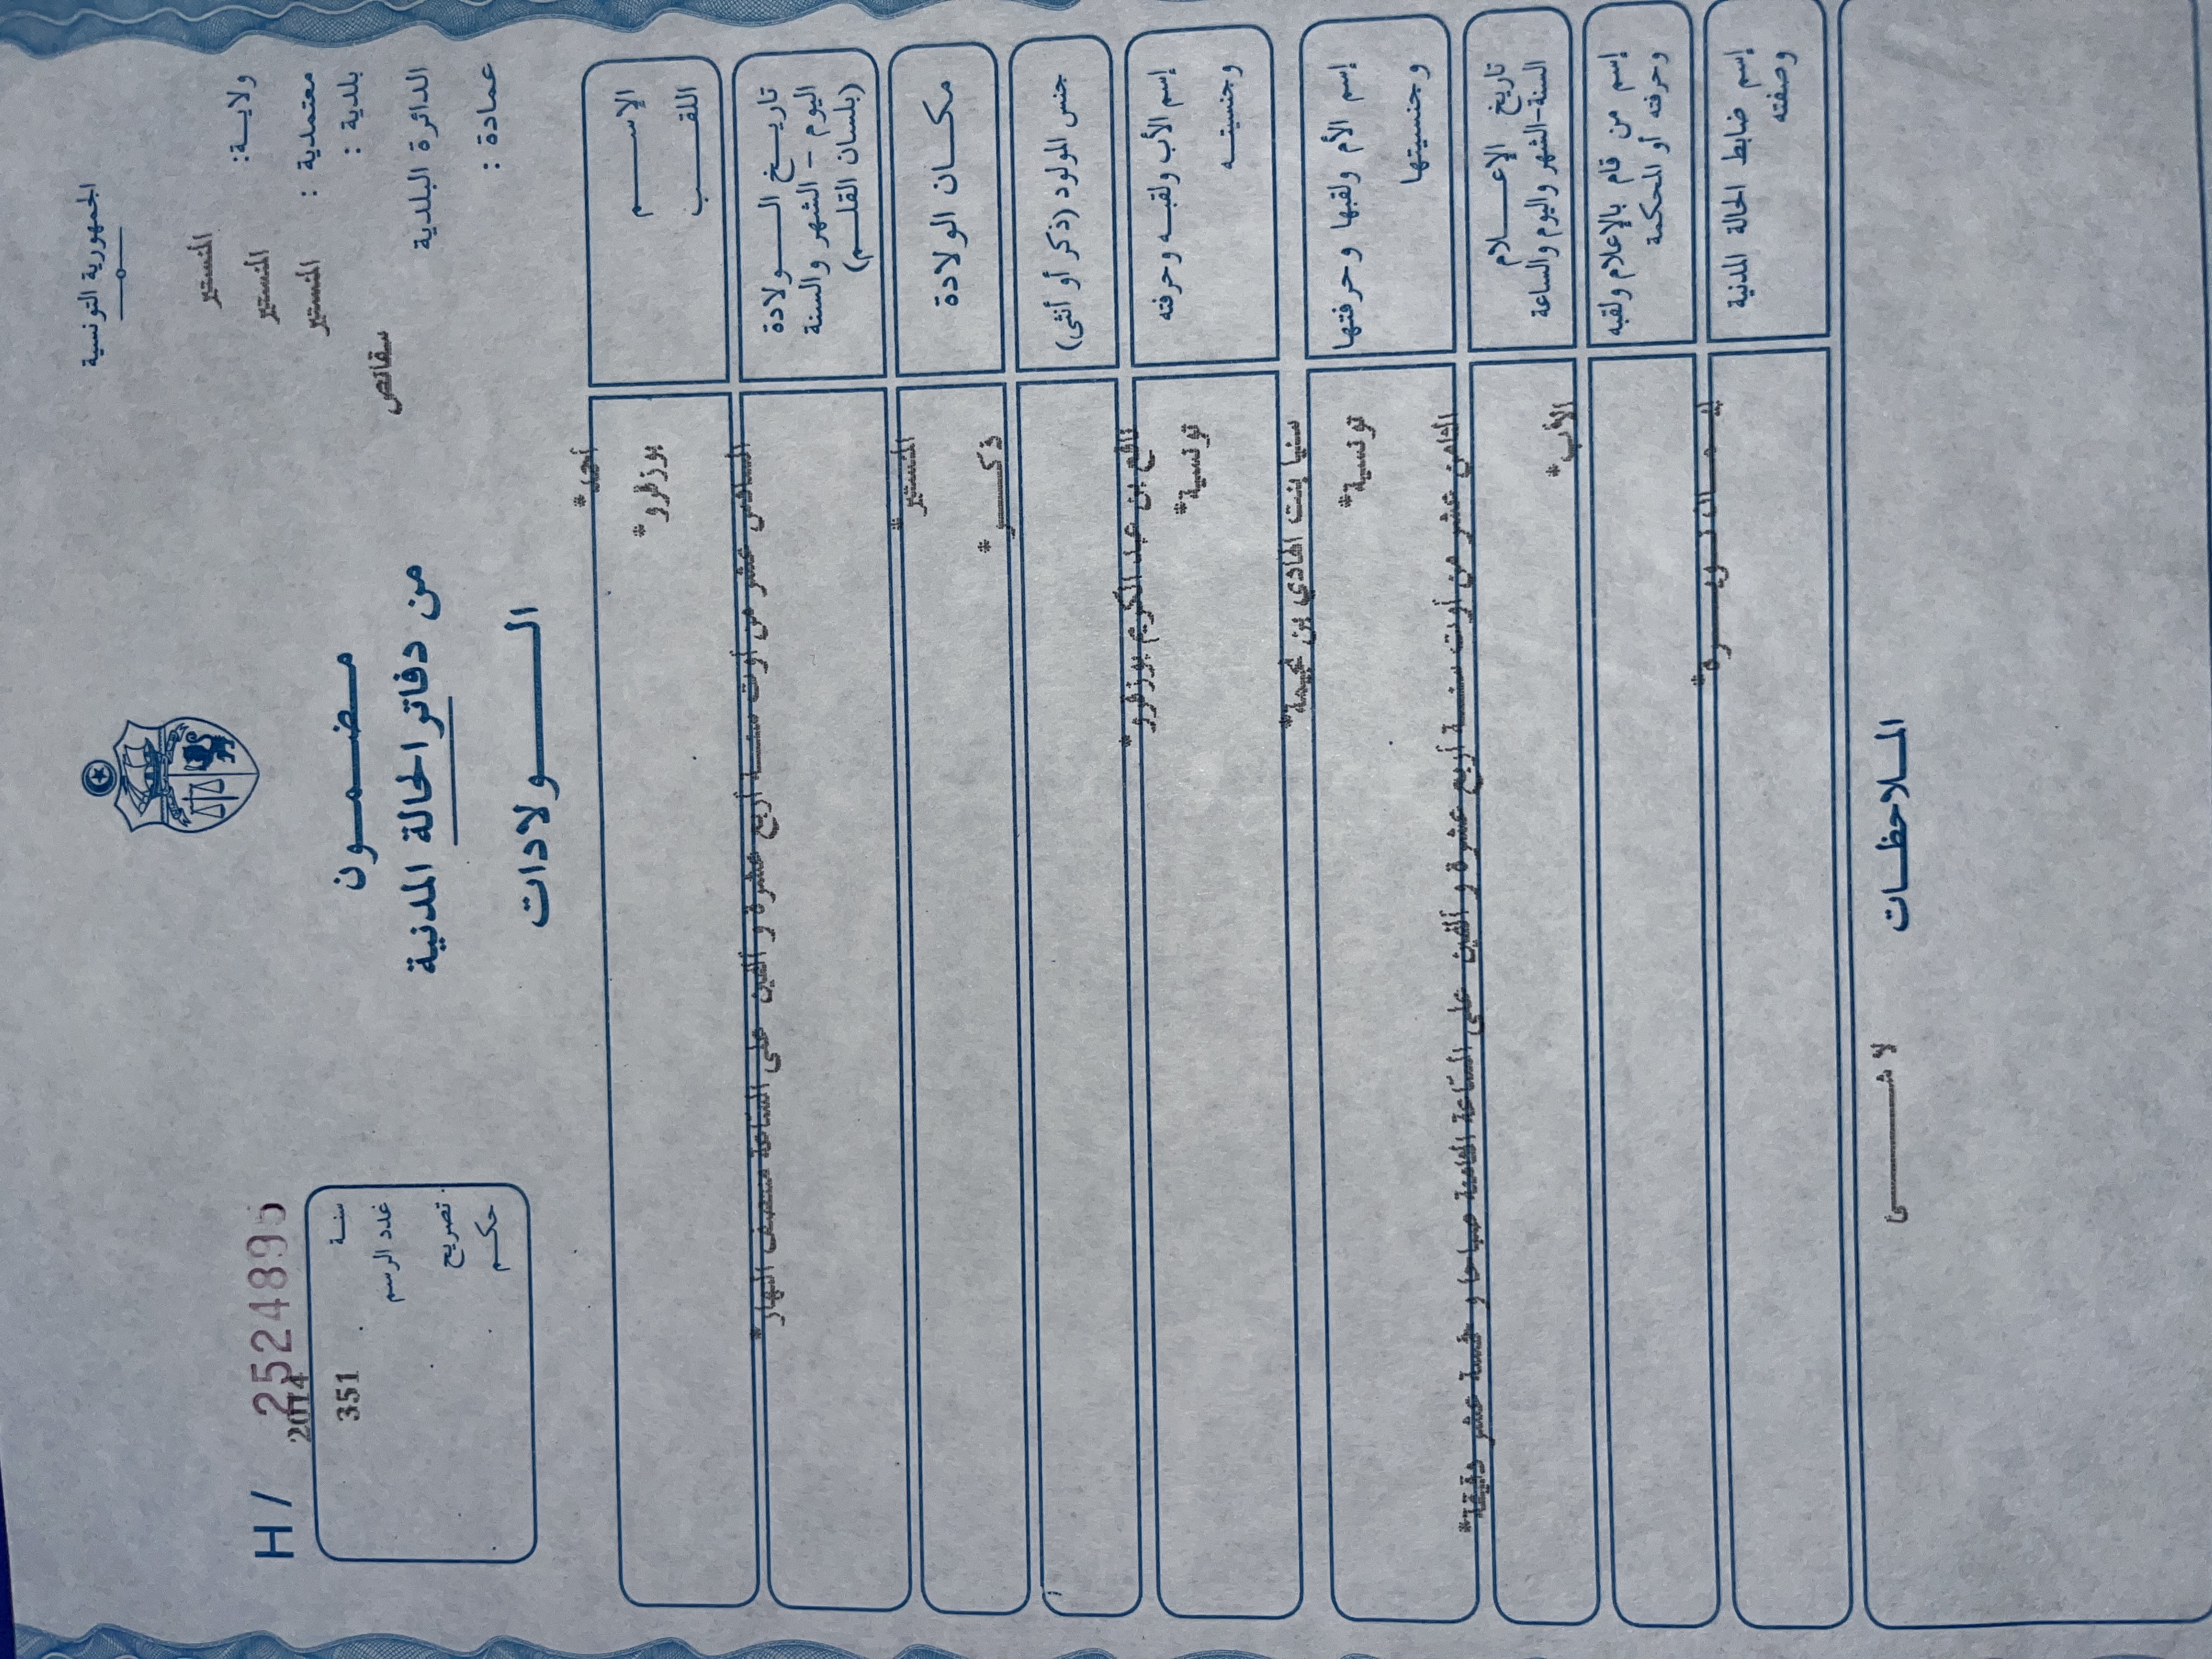 الجمهورية التونسية
ولاية: المنستير
معتمدية : المنستير
بلدية : المنستير
الدائرة البلدية سقانص
عمادة :
مضمون
من دفاتر الحالة المدنية
الولادات
H / 252489
سنة 2014
عدد الرسم 351
تصريح
حكم
الإسم أحمد*
اللقب بوزقرو*
تاريخ الولادة
اليوم - الشهر والسنة
(بلسان القلم)
السادس عشر من أوت سنة أربع عشرة و ألفين على الساعة منتصف النهار*
مكان الولادة المنستير*
جنس المولود (ذكر أو أنثى) ذكر*
إسم الأب ولقبه وحرفته بن عبد الكريم بوزقرو*
وجنسيته تونسية*
إسم الأم ولقبها وحرفتها سنيا بنت الهادي بن
وجنسيتها تونسية*
تاريخ الإعلام
السنة-الشهر واليوم والساعة
الثامن عشر من أوت سنة أربع عشرة و ألفين على الساعة صباحا و خمسة عشر دقيقة*
إسم من قام بالإعلام ولقبه الأب*
وحرفته أو المحكمة
إسم ضابط الحالة المدنية
وصفته
الملاحظات
لا شيء